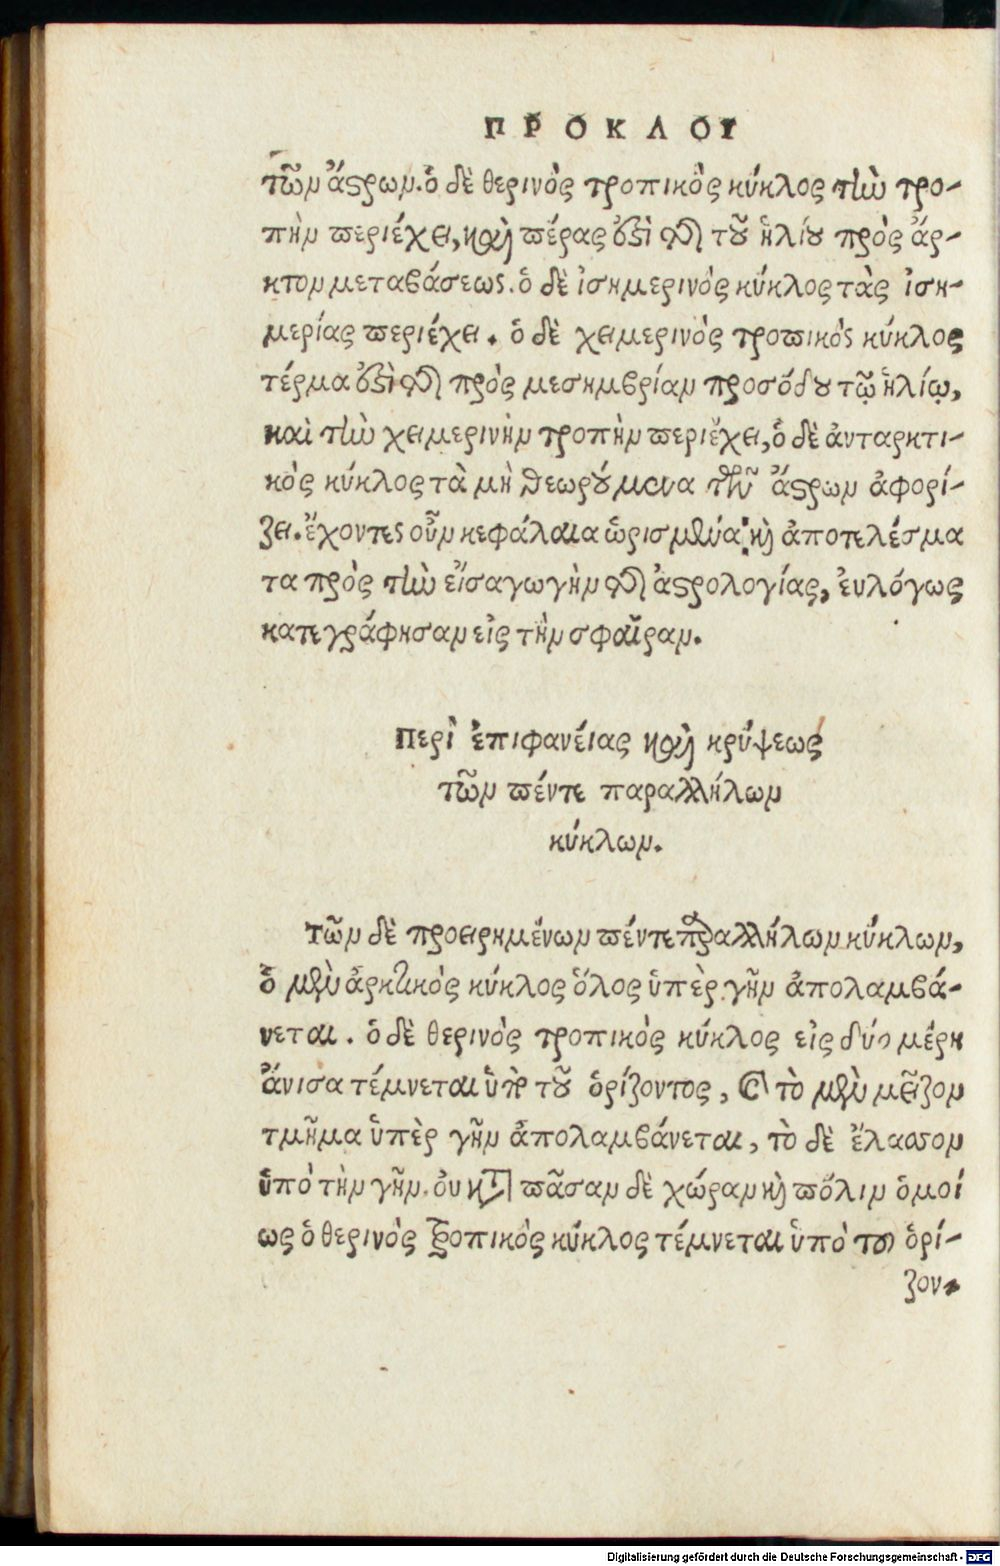 ΠΡΟΚΛΟΥ
τῶν ἄστρων. ὁ δὲ θερινὸς τροπικὸς κύκλος τὴν τρο-
πὴν περιέχει, καὶ πέρας ἐστὶ τῆς τοῦ ἡλίου πρὸς ἄρ-
κτον μεταβάσεως. ὁ δὲ ἰσημερινὸς κύκλος τὰς ἰση-
μερίας περιέχει. ὁ δὲ χειμερινὸς τροπικὸς κύκλος
τέρμα ἐστὶ τῆς πρὸς μεσημβρίαν προσόδου τῷ ἡλίῳ,
καὶ τὴν χειμερινὴν τροπὴν περιέχει, ὁ δὲ ἀνταρκτι-
κὸς κύκλος τὰ μὴ θεωρούμενα τῶν ἄστρων ἀφορί-
ζει. ἔχοντες οὖν κεφάλαια ὡρισμένα καὶ ἀποτελέσμα
τα πρὸς τὴν εἰσαγωγὴν τῆς ἀστρολογίας, εὐλόγως
κατεγράφησαν εἰς τὴν σφαῖραν.
Περὶ ἐπιφανείας καὶ κρύψεως
τῶν πέντε παραλλήλων
κύκλων.
Τῶν δὲ προειρημένων πέντε παραλλήλων κύκλων,
ὁ μὲν ἀρκτικὸς κύκλος ὅλος ὑπὲρ γῆν ἀπολαμβά-
νεται. ὁ δὲ θερινὸς τροπικὸς κύκλος εἰς δύο μέρη
ἄνισα τέμνεται ὑπὸ τοῦ ὁρίζοντος, καὶ τὸ μὲν μεῖζον
τμῆμα ὑπὲρ γῆν ἀπολαμβάνεται, τὸ δὲ ἔλασσον
ὑπὸ τὴν γῆν. οὐ κατὰ πᾶσαν δὲ χώραν καὶ πόλιν ὁμοί
ως ὁ θερινὸς τροπικὸς κύκλος τέμνεται ὑπὸ τοῦ ὁρί-
ζον-
Digitalisierung gefördert durch die Deutsche Forschungsgemeinschaft - DFG